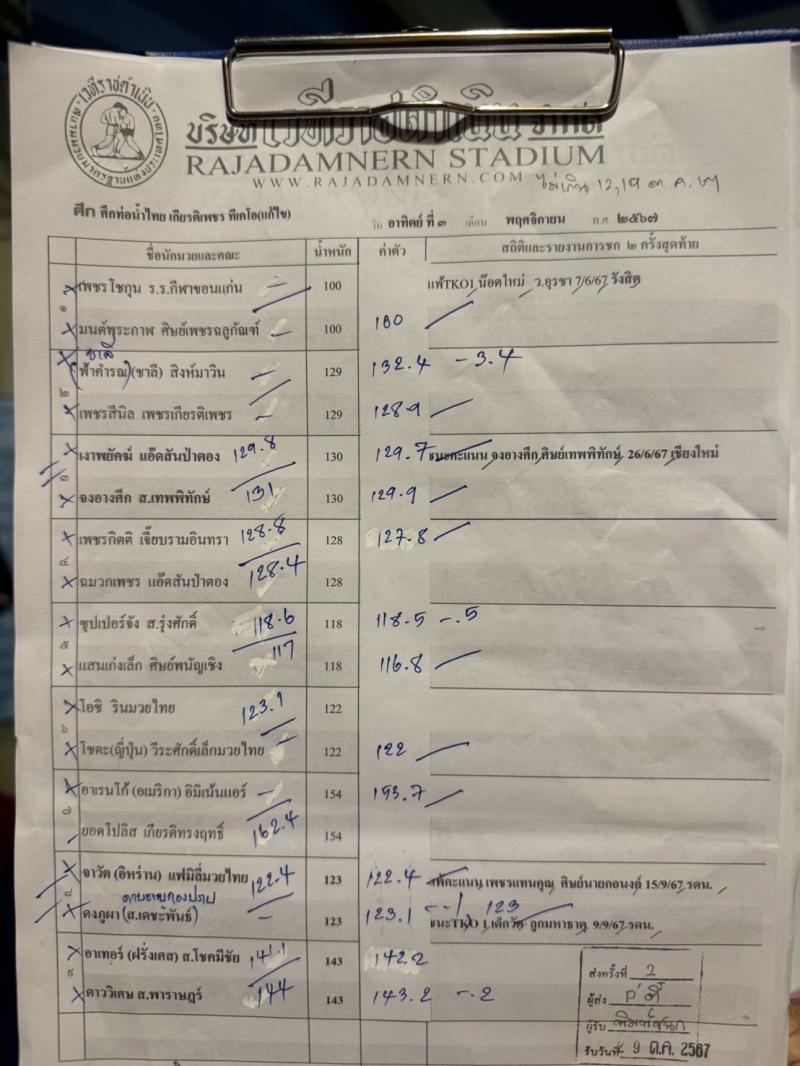 เวทีราชดำเนิน
บริษัท เวทีราชดำเนิน จำกัด
RAJADAMNERN STADIUM
WWW.RAJADAMNERN.COM
ไม่เกิน 12,19
ศึก ศึกท่อน้ำไทย เกียรติเพชร ทีเคโอ(แก้ไข) วัน อาทิตย์ ที่ ๓ เดือน พฤศจิกายน พ.ศ ๒๕๖๗
ชื่อนักมวยและคณะ น้ำหนัก ค่าตัว สถิติและรายงานการชก ๒ ครั้งสุดท้าย
เพชรโชกุน ร.ร.กีฬาขอนแก่น 100 แพ้TKO1 น๊อตใหม่ ว.อุรชา 7/6/67 รังสิต
๑
มนต์พุระกาฬ ศิษย์เพชรฉลูกัณฑ์ 100 100
ชาลี
(ฟ้าคำรณ)(ชาลี) สิงห์มาวิน 129 132.4 -3.4
๒
เพชรสีนิล เพชรเกียรติเพชร 129 128.9
เงาพยัคฆ์ แอ๊ดสันป่าตอง 129.8 130 129.7 ชนะคะแนน จงอางศึก ศิษย์เทพพิทักษ์ 26/6/67 เชียงใหม่
๓
จงอางศึก ส.เทพพิทักษ์ 131 130 129.9
เพชรกิตติ เจี๊ยบรามอินทรา 128.8 128 127.8
๔
ฉมวกเพชร แอ๊ดสันป่าตอง 128.4 128
ซุปเปอร์จัง ส.รุ่งศักดิ์ 118.6 118 118.5 -.5
๕
แสนเก่งเล็ก ศิษย์พนัญเชิง 117 118 116.8
โอชิ รินมวยไทย 123.1 122
๖
โชตะ(ญี่ปุ่น) วีระศักดิ์เล็กมวยไทย 122 122
อาเรนโก้ (อเมริกา) อิมิเน้นแอร์ 154 153.7
๗
ยอดโปลิส เกียรติทรงฤทธิ์ 162.4 154
จาวัด (อิหร่าน) แฟมิลี่มวยไทย 122.4 123 122.4 แพ้คะแนน เพชรแทนคุณ ศิษย์นายกอนงถ์ 15/9/67 รดน.
๘
ดงภูผา (ส.เดชะพันธ์) 123 123.1 -.1 123 ชนะTKO 1 เด็กวัด ลูกมหาธาตุ 9/9/67 รดน.
อาเทอร์ (ฝรั่งเศส) ส.โชคมีชัย 141.1 143 142.2
๙
ดาววิเศษ ส.พาราษฎร์ 144 143 143.2 -.2
ส่งครั้งที่ 2
ผู้ส่ง
ผู้รับ พิมพ์ชนก
รับวันที่ 9 ต.ค. 2567